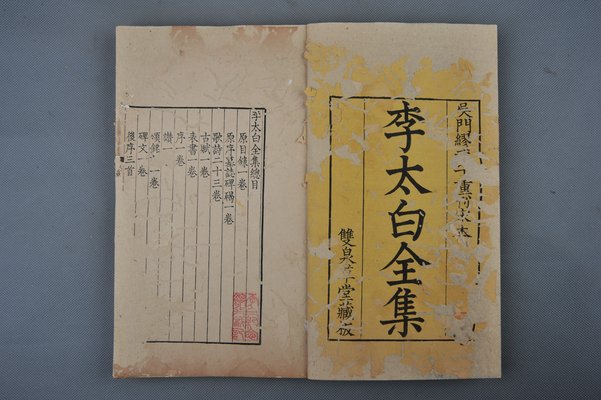 吳門繆 重 宋本
李太白全集
雙泉草堂藏板
李太白全集總目
原目錄一卷
原序墓誌碑碣一卷
歌詩二十三卷
古賦一卷
表書一卷
序一卷
讚一
頌銘 一卷
碑文 卷
後序三首